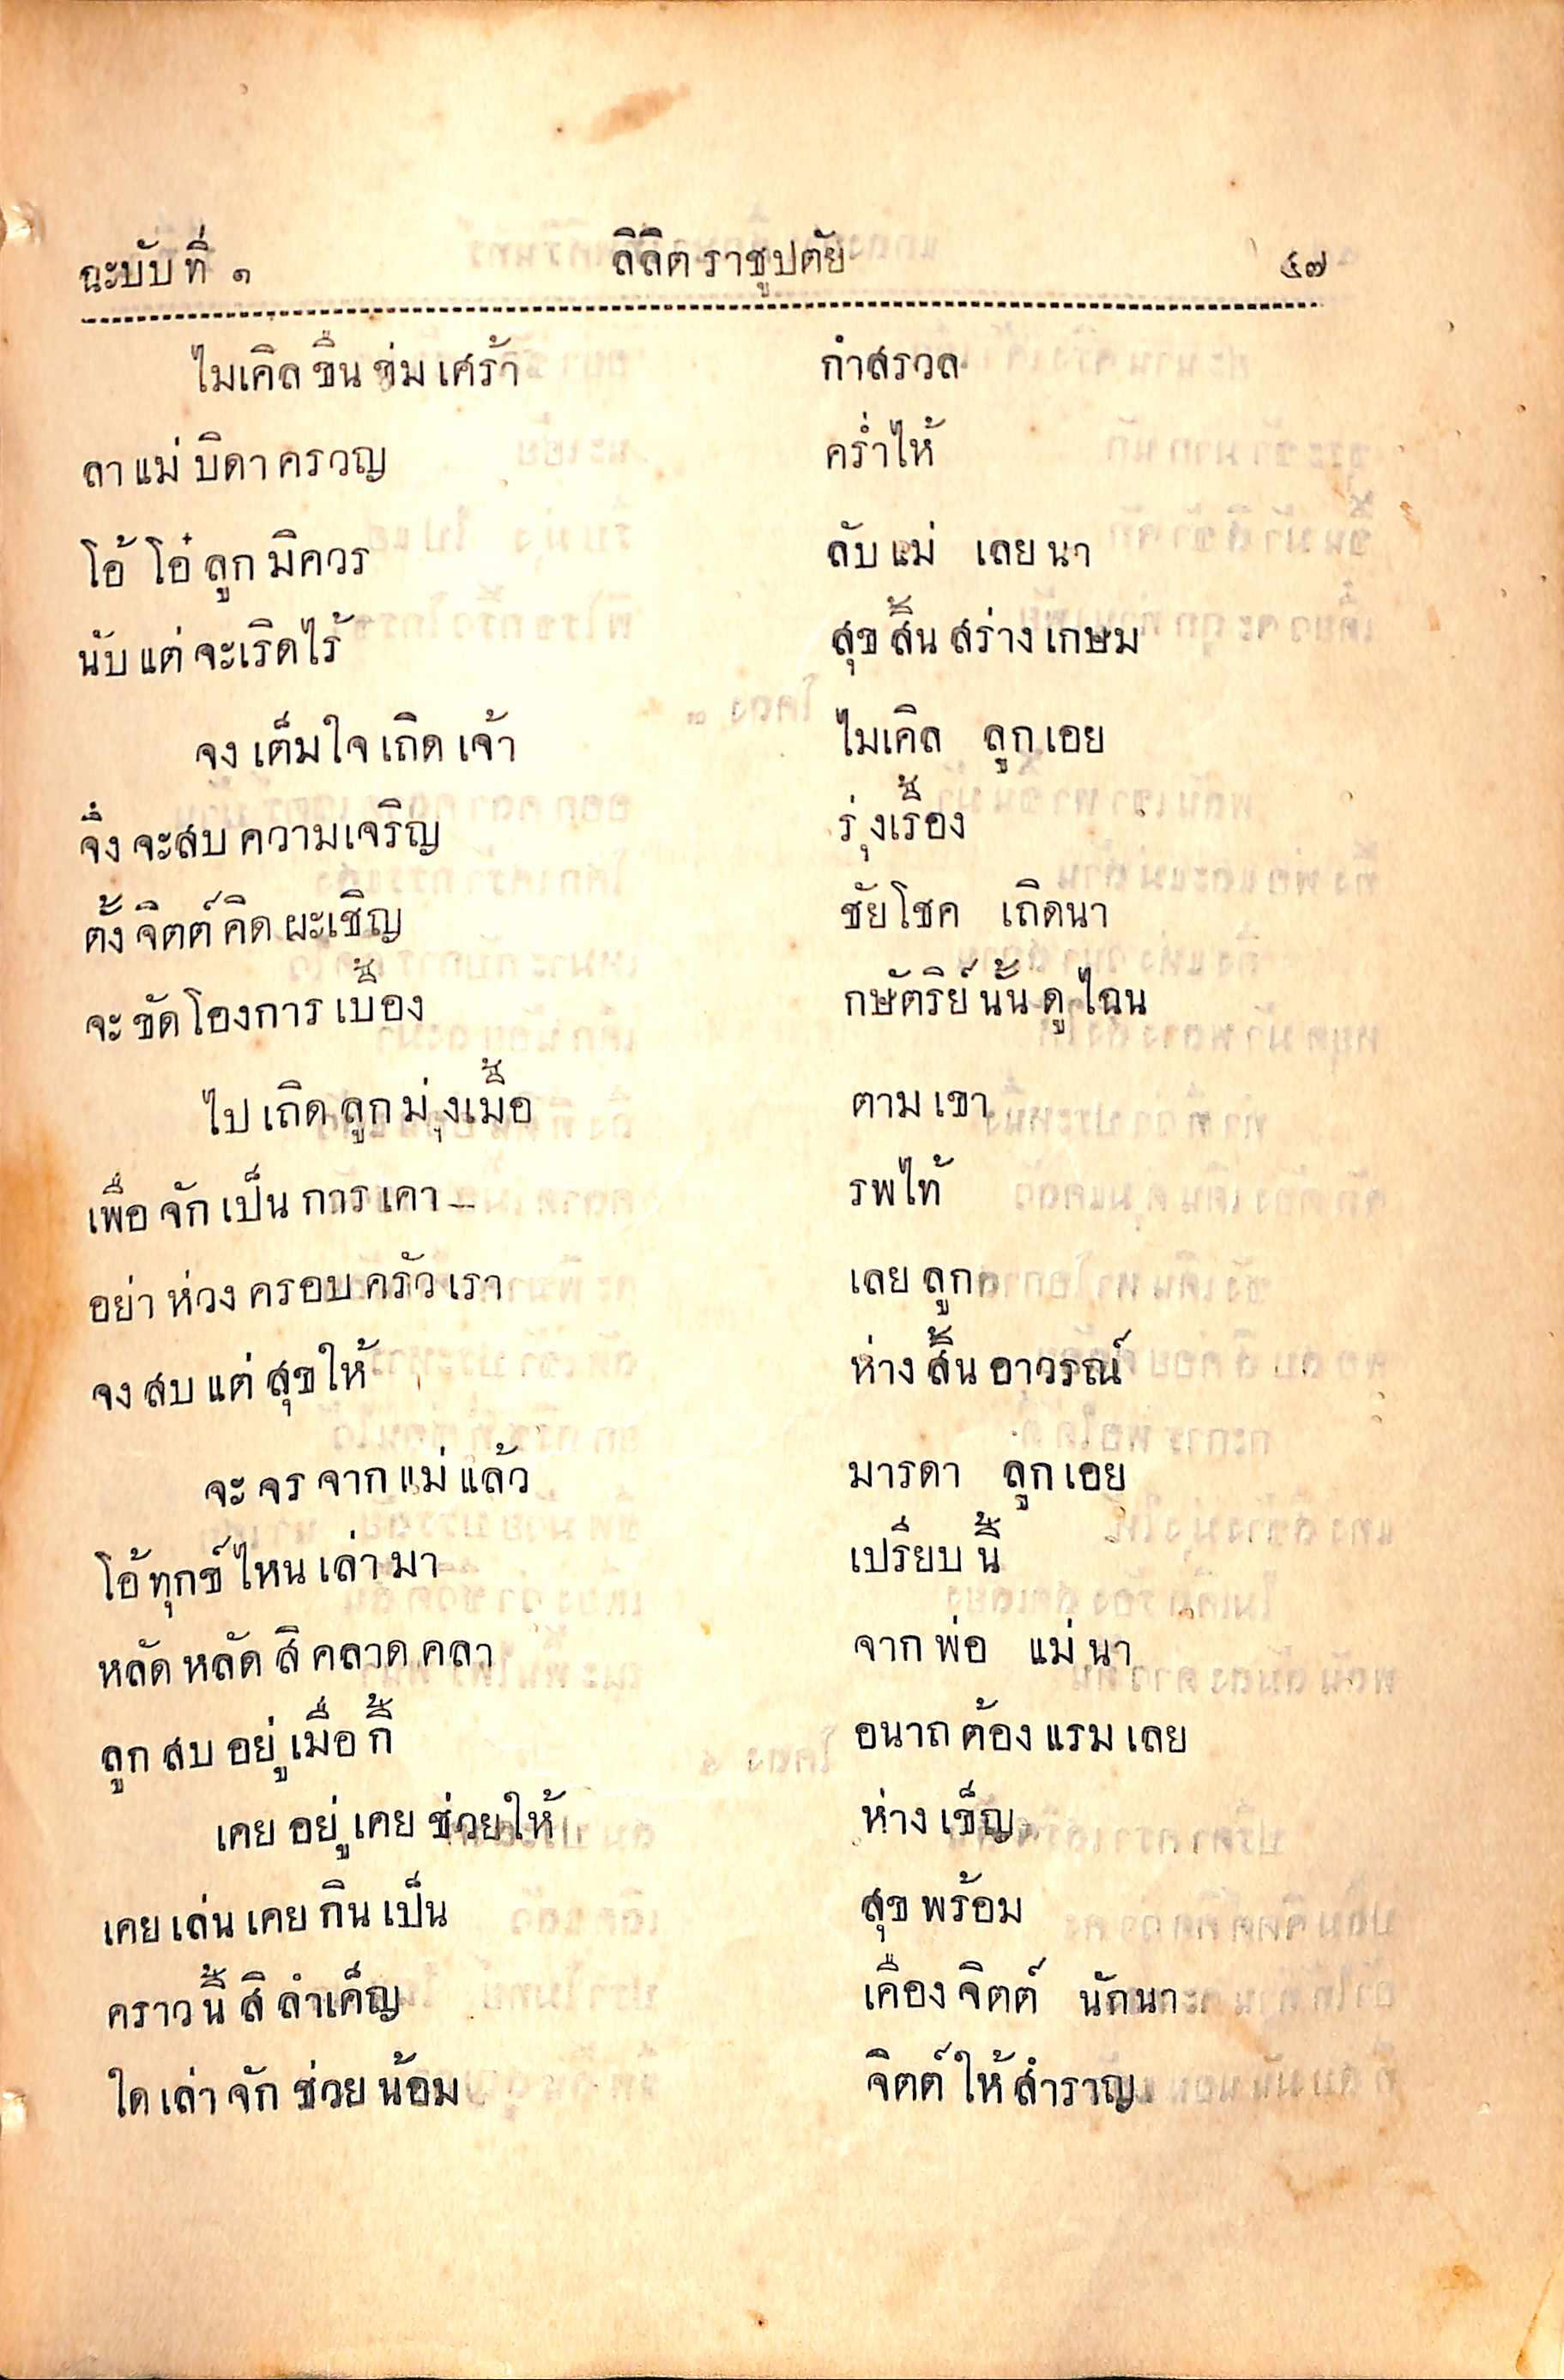 ฉะบับที่ ๑ ลิลิตราชูปตัย ๔๗
ไมเคิลขืนข่มเศร้า กำสรวล
ลาแม่บิดาครวญ คร่ำไห้
โอ้โอ๋ลูกมิควร ลับแม่ เลยนา
นับแต่จะเริดไร้ สุขสิ้นสร่างเกษม
จงเต็มใจเถิดเจ้า ไมเคิล ลูกเอย
จึ่งจะสบความเจริญ รุ่งเรื้อง
ตั้งจิตต์คิดผะเชิญ ชัยโชค เถิดนา
จะขัดโองการเบื้อง กษัตริย์นั้นดูไฉน
ไปเถิดลูกมุ่งเมื้อ ตามเขา
เพื่อจักเป็นการเคา — รพไท้
อย่าห่วงครอบครัวเรา เลยลูก
จงสบแต่สุขให้ ห่างสิ้นอาวรณ์
จะจรจากแม่แล้ว มารดา ลูกเอย
โอ้ทุกข์ไหนเล่ามา เปรียบนี้
หลัดหลัดสิคลาดคลา จากพ่อ แม่นา
ลูกสบอยู่เมื่อกี้ อนาถต้องแรมเลย
เคยอยู่เคยช่วยให้ ห่างเข็ญ
เคยเล่นเคยกินเป็น สุขพร้อม
คราวนี้สิลำเค็ญ เคืองจิตต์ นักนา
ใดเล่าจักช่วยน้อม จิตต์ให้สำราญ